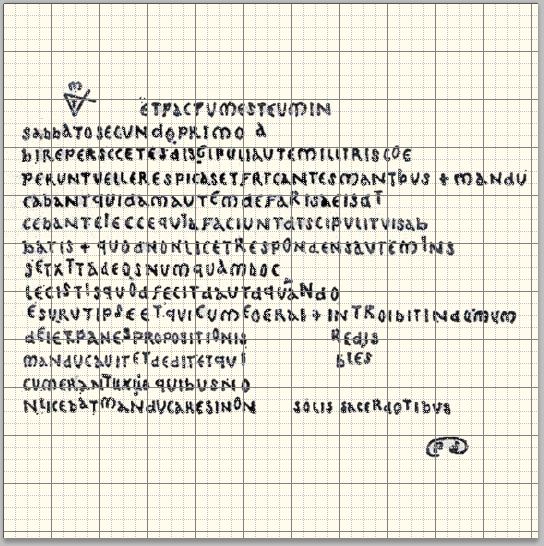 ETFACTUMESTEUMIN
SAbbATOSECUNdOPRIMO A
bIREPERSCCETESdISGIPULIAUTEMILLTRISCOE
PERUNTUELLERESPICASETFRTCANTESMANTbUS + MANdU
CAbANTQUIdAMAUTEMdEFARISAEISdT
CEbANTEIECCEQUIAFACIUNTdTSCIPULITUISAb
bATIS + QUOdNONLICETRESPONdENSAUTEMINS
SETXTTAdEOSNUMQUAMhOC
LECISTISQUOdFECITdAUTdQUANdO
ESURUTIPSEETQUICUMEOERAI + INTROIbITINdUMUM
dEIETPANESPROPOSITIONIS REdIS
MANdUCAUITETdEdITETQUI bLES
CUMERANTUXIIE QUIbUSNO
NLICEbATMANdUCARESINON SOLIS SACERdOTIbUS